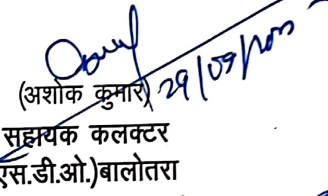 (अशोक कुमार)
सहायक कलक्टर
एस.डी.ओ.)बालोतरा